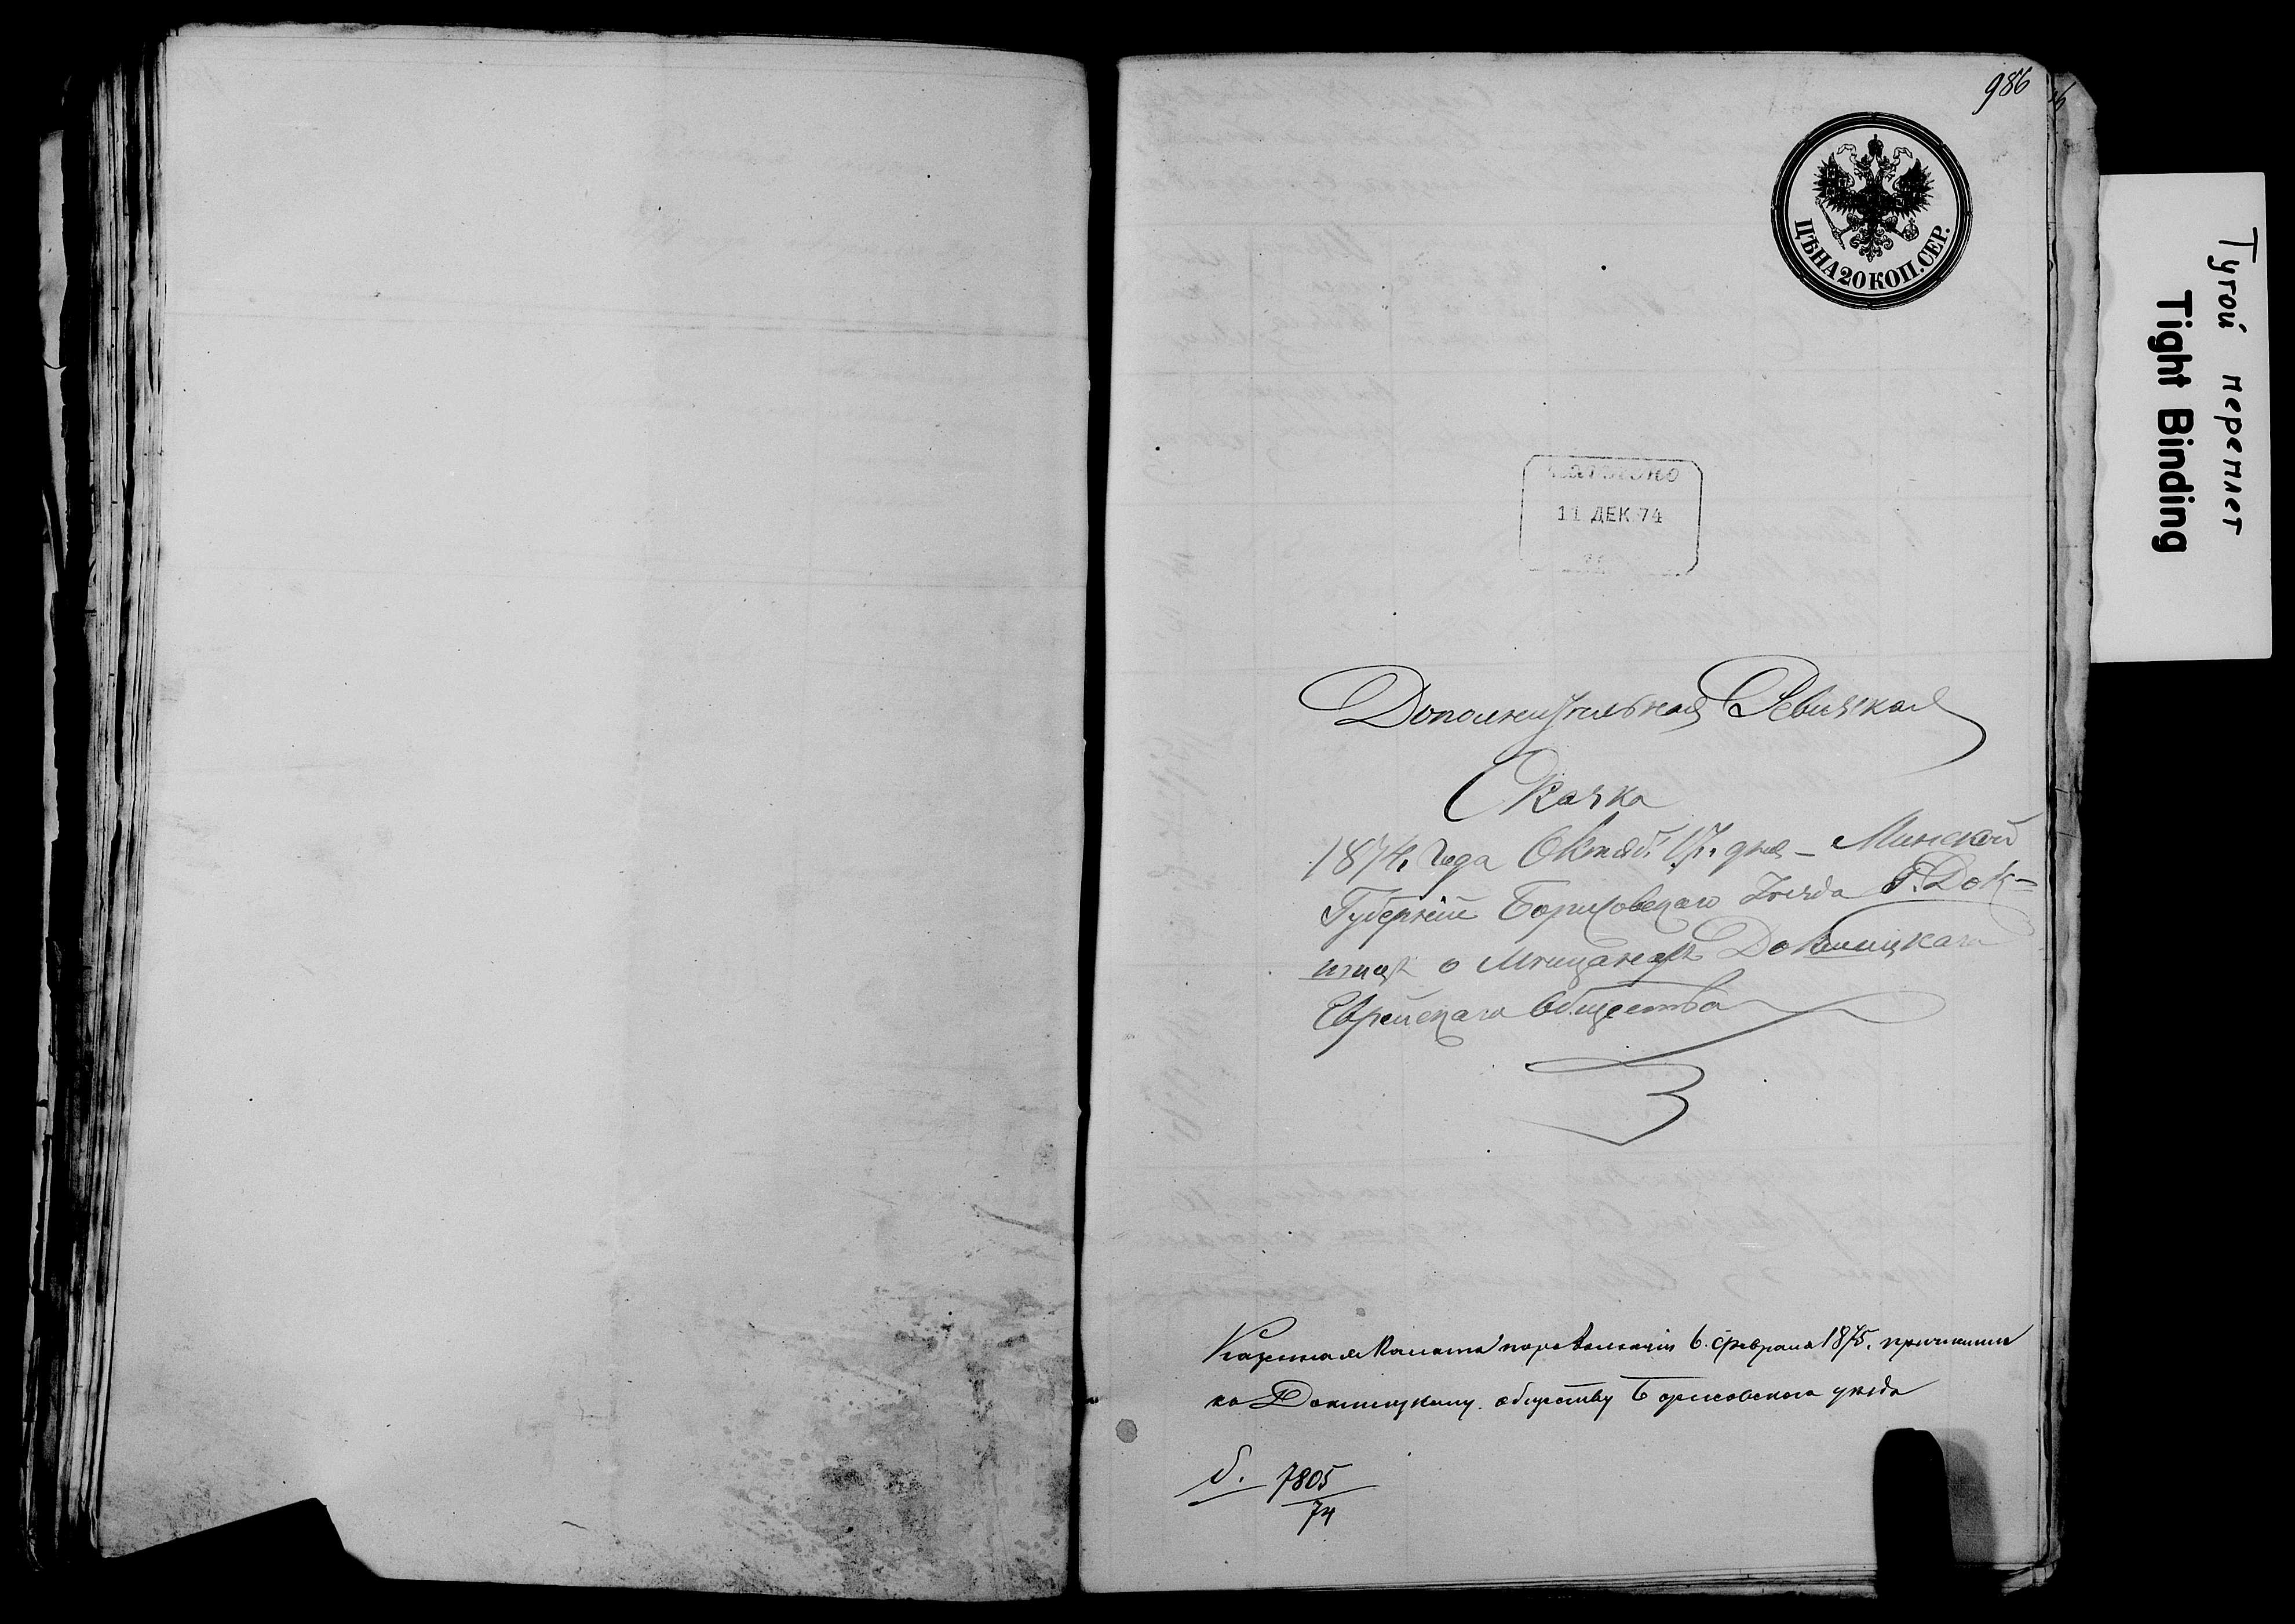 986
ЦѢНА 20 КОП. СЕР.
11 ДЕК 74
Дополнительная Ревизская
Сказка
1874, Года Октяб: 17, дня – Минской
Губерніи Борисовскаго Уѣзда Г. Док-
шицѣ о Мѣщанехъ Докшицкаго
Еврейскаго Общества
Казенная Палата 6. февраля 1875, причислила
къ Докшицкому обществу Борисовскаго уѣзда
7805
74
Тугой переплет
Tight Binding